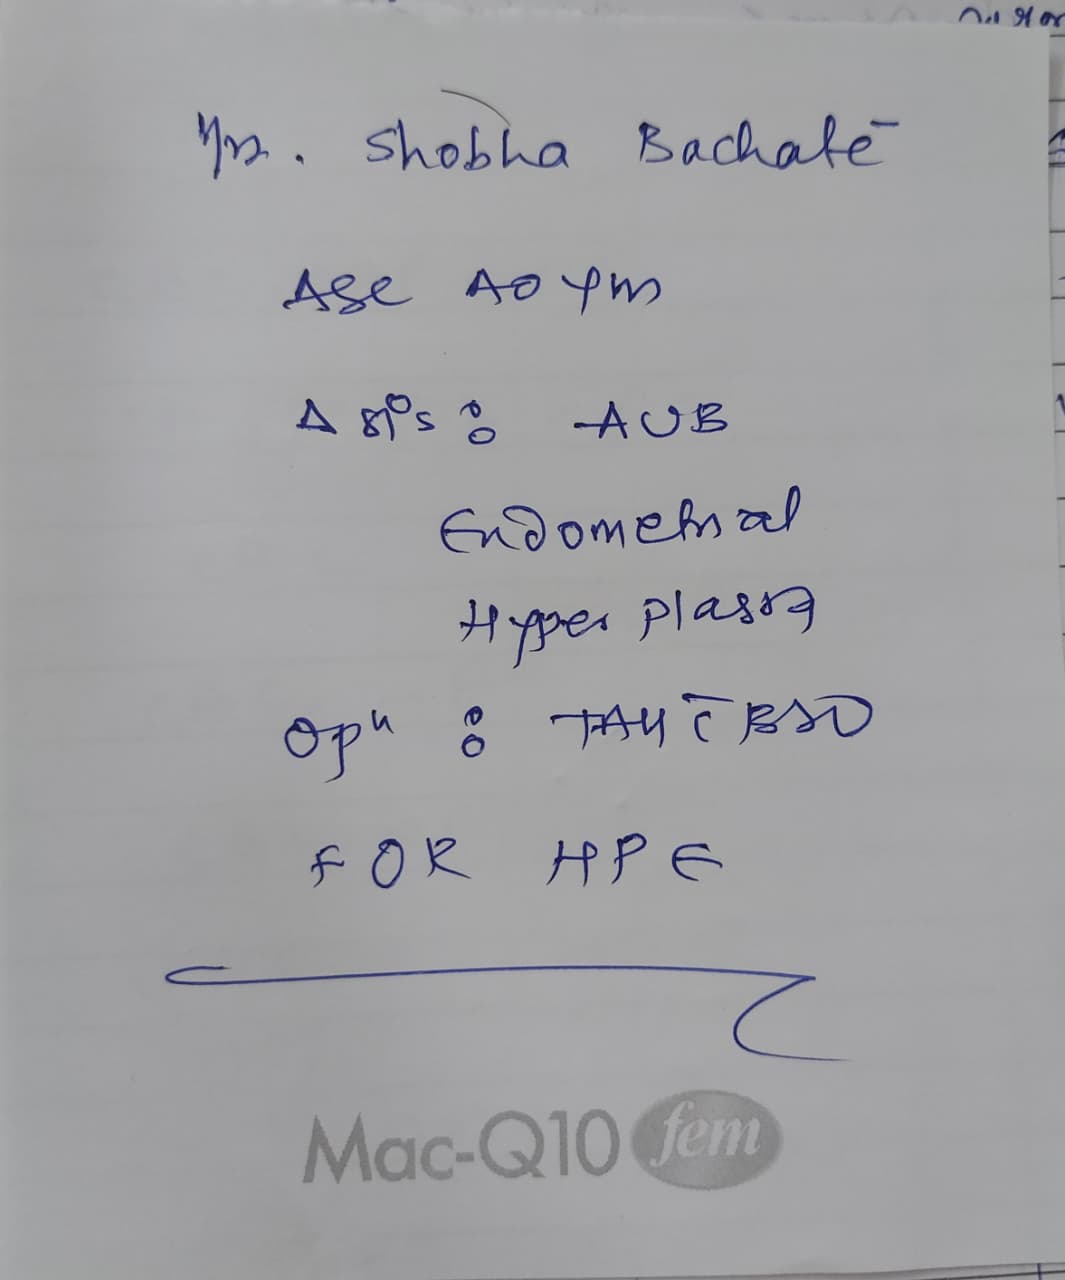 Mrs. Shobha Bachate
Age 40 yrs
Δ sis : AUB
Endometrial
Hyper plasia
Opn : TAH c̄ BSO
FOR HPE
Mac-Q10 fem